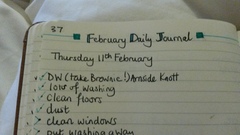 37
February Daily Journal
Thursday 11th February
DW (take Brownie!) Arnside Knott
low of washing
clean floors
dust
clean windows
put washing away